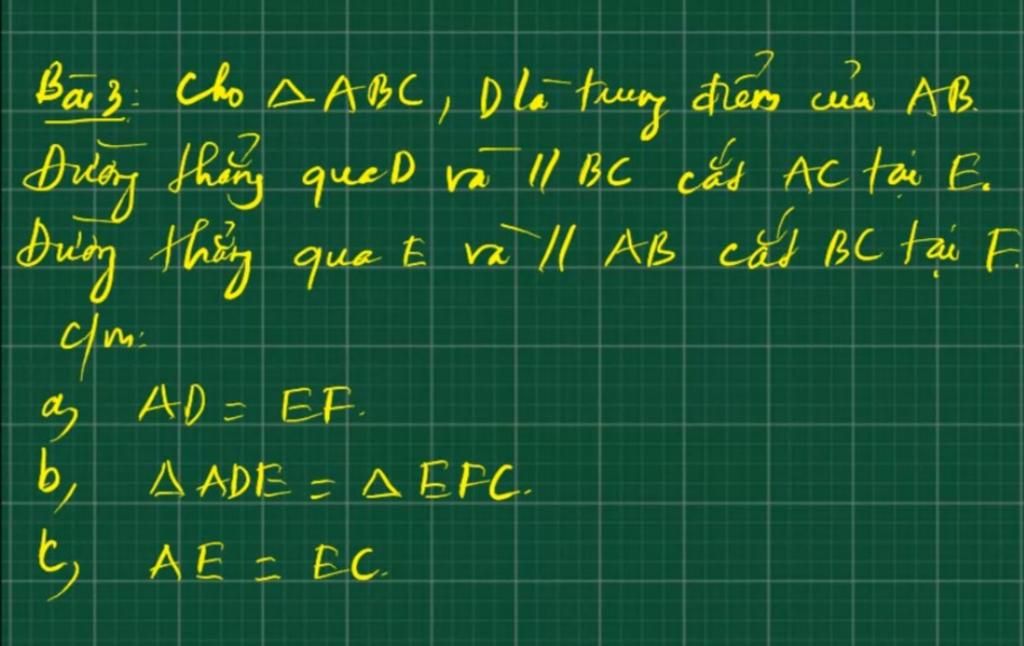 Bài 3: Cho △ ABC, D là trung điểm của AB.
Đường thẳng qua D và // BC cắt AC tại E.
Đường thẳng qua E và // AB cắt BC tại F.
c/m:
a, AD = EF.
b, △ ADE = △ EFC.
c, AE = EC.